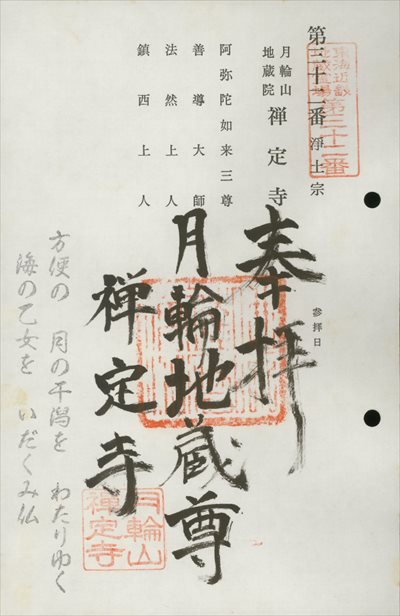 第三十二番 浄土宗
東海近畿
地蔵霊場
第三十二番
月輪山
地蔵院
禅定寺
阿弥陀如来三尊
善導大師
法然上人
鎮西上人
参拝日
奉拝
月輪地蔵尊
禅定寺
月輪山
禅定寺
方便の 月の干潟を わたりゆく
海の乙女を いだくみ仏